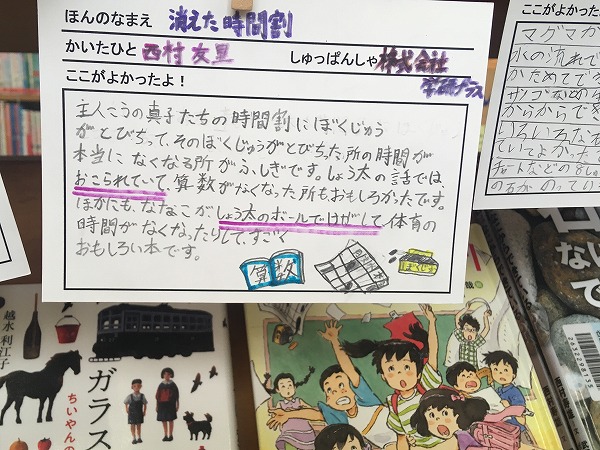 ほんのなまえ 消えた時間割
かいたひと 西村友里
しゅっぱんしゃ 株式会社
学研プラス
ここがよかったよ!
主人こうの真子たちの時間割にぼくじゅう
がとびちって、そのぼくじゅうがとびちった所の時間が
本当になくなる所がふしぎです。しょう太の話では
おこられていて算数がなくなった所もおもしろかったです。
ほかにも、ななこが、しょう太のボールでけがして体育の
時間がなくなったりして、すごく
おもしろい本です。
算数
ぼくじゅう
ここがよかっ
マグマが
水の流れで
かためてでき
サンゴなどか
からからでき
いろいろな石
ていてよかった
チャートなどの
のちが のってい
越水 利江子
ガラス
ちいやんの
ない
で